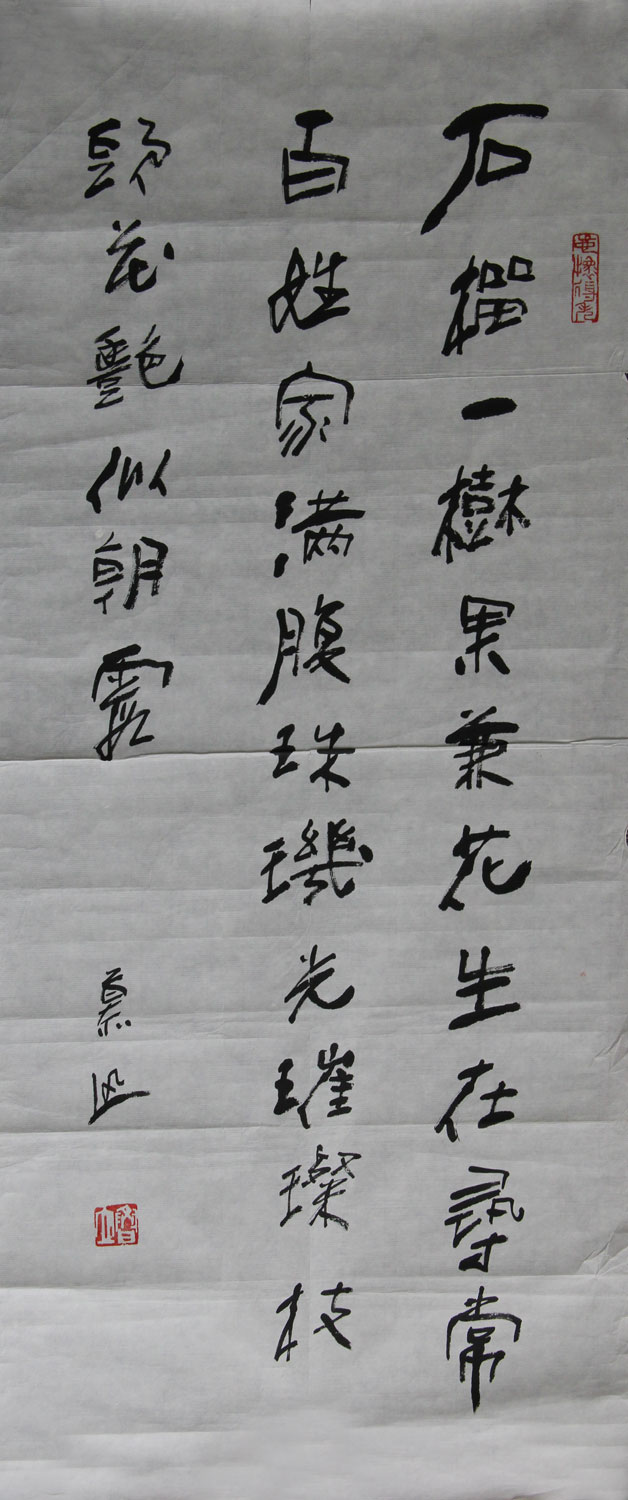 石榴一樹果兼花生在尋常
百姓家满腹珠璣光璀璨枝
頭花艷似朝霞